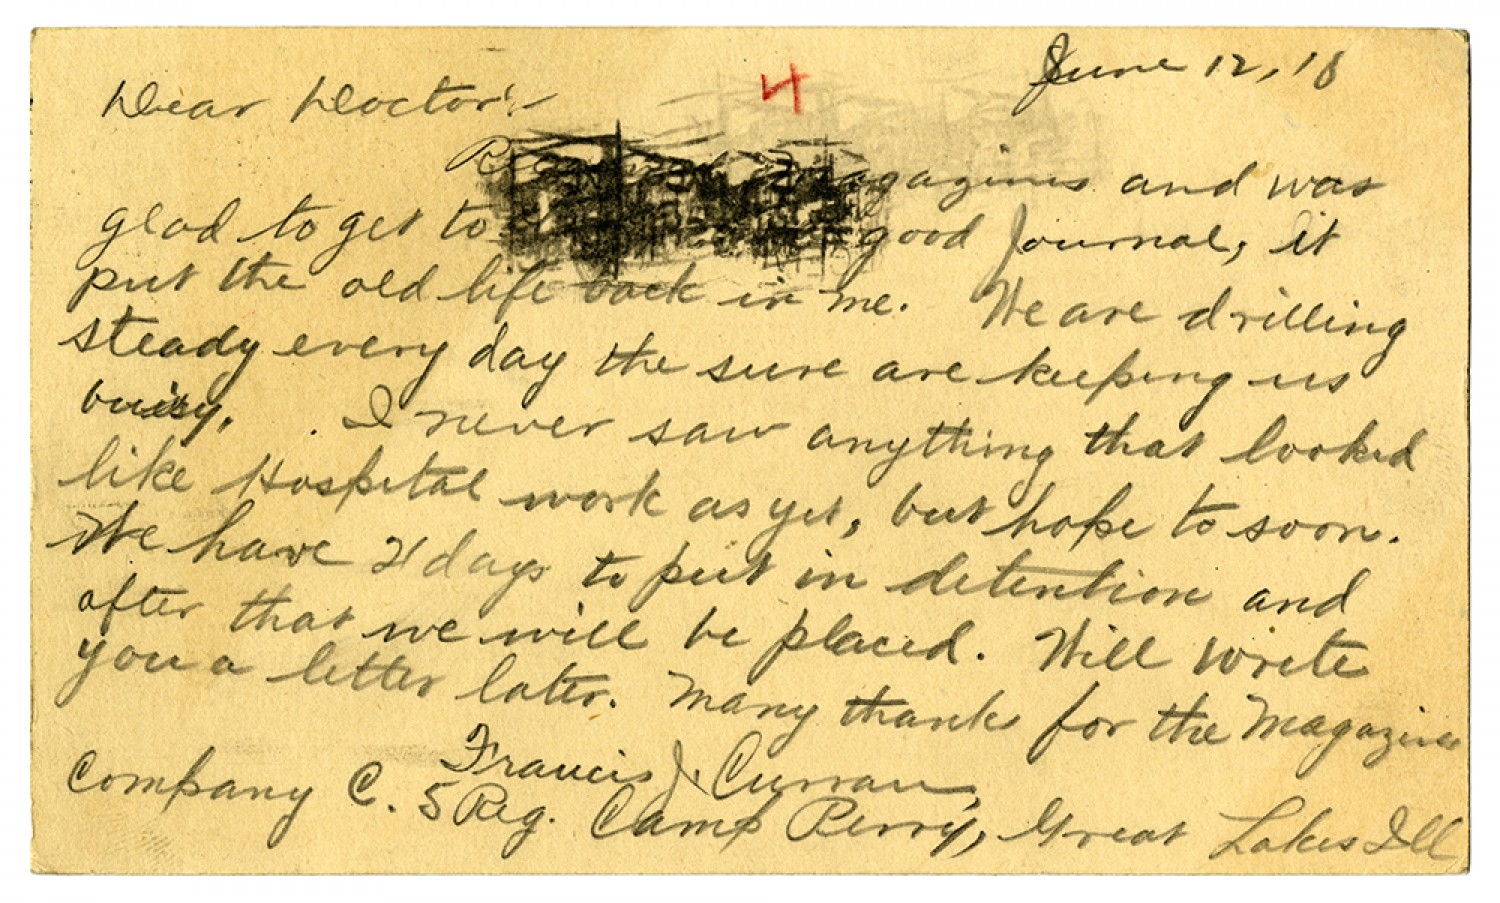 June 12, 18
4
Dear Doctor:-
Magazines and was
glad to get to good Journal, it
put the old life back in me. We are drilling
steady every day the sure are keeping us
buisy. I never saw anything that looked
like Hospital work as yet, but hope to soon.
We have 21 days to put in detention and
after that we will be placed. Will write
you a letter later. Many thanks for the Magazines
Francis J. Curran,
Company C. 5 Reg. Camp Perry, Great Lakes Ill